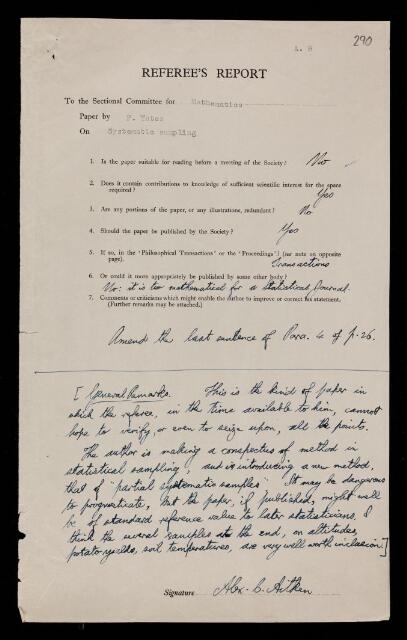 290
A. B
REFEREE'S REPORT
To the Sectional Committee for Mathematics
Paper by F. Yates
On Systematic sampling
1. Is the paper suitable for reading before a meeting of the Society? No
2. Does it contain contributions to knowledge of sufficient scientific interest for the space
required? Yes
3. Are any portions of the paper, or any illustrations, redundant? No
4. Should the paper be published by the Society? Yes
5. If so, in the 'Philosophical Transactions' or the 'Proceedings'? (see note on opposite
page). Transactions
6. Or could it more appropriately be published by some other body?
No: it is too mathematical for a Statistical Journal.
7. Comments or criticisms which might enable the author to improve or correct his statement.
(Further remarks may be attached.)
Amend the last sentence of Para. 4 of p. 26.
[General Remarks. This is the kind of paper in
which the referee, in the time available to him, cannot
hope to verify, or even to seize upon, all the points.
The author is making a conspectus of method in
statistical sampling, and is introducing a new method,
that of "partial systematic samples". It may be dangerous
to prognosticate, but the paper, if published, might well
be of standard reference value to later statisticians. I
think the several samples at the end, on altitudes,
potato yields, soil temperatures, are very well worth inclusion.]
Signature Alex. C. Aitken